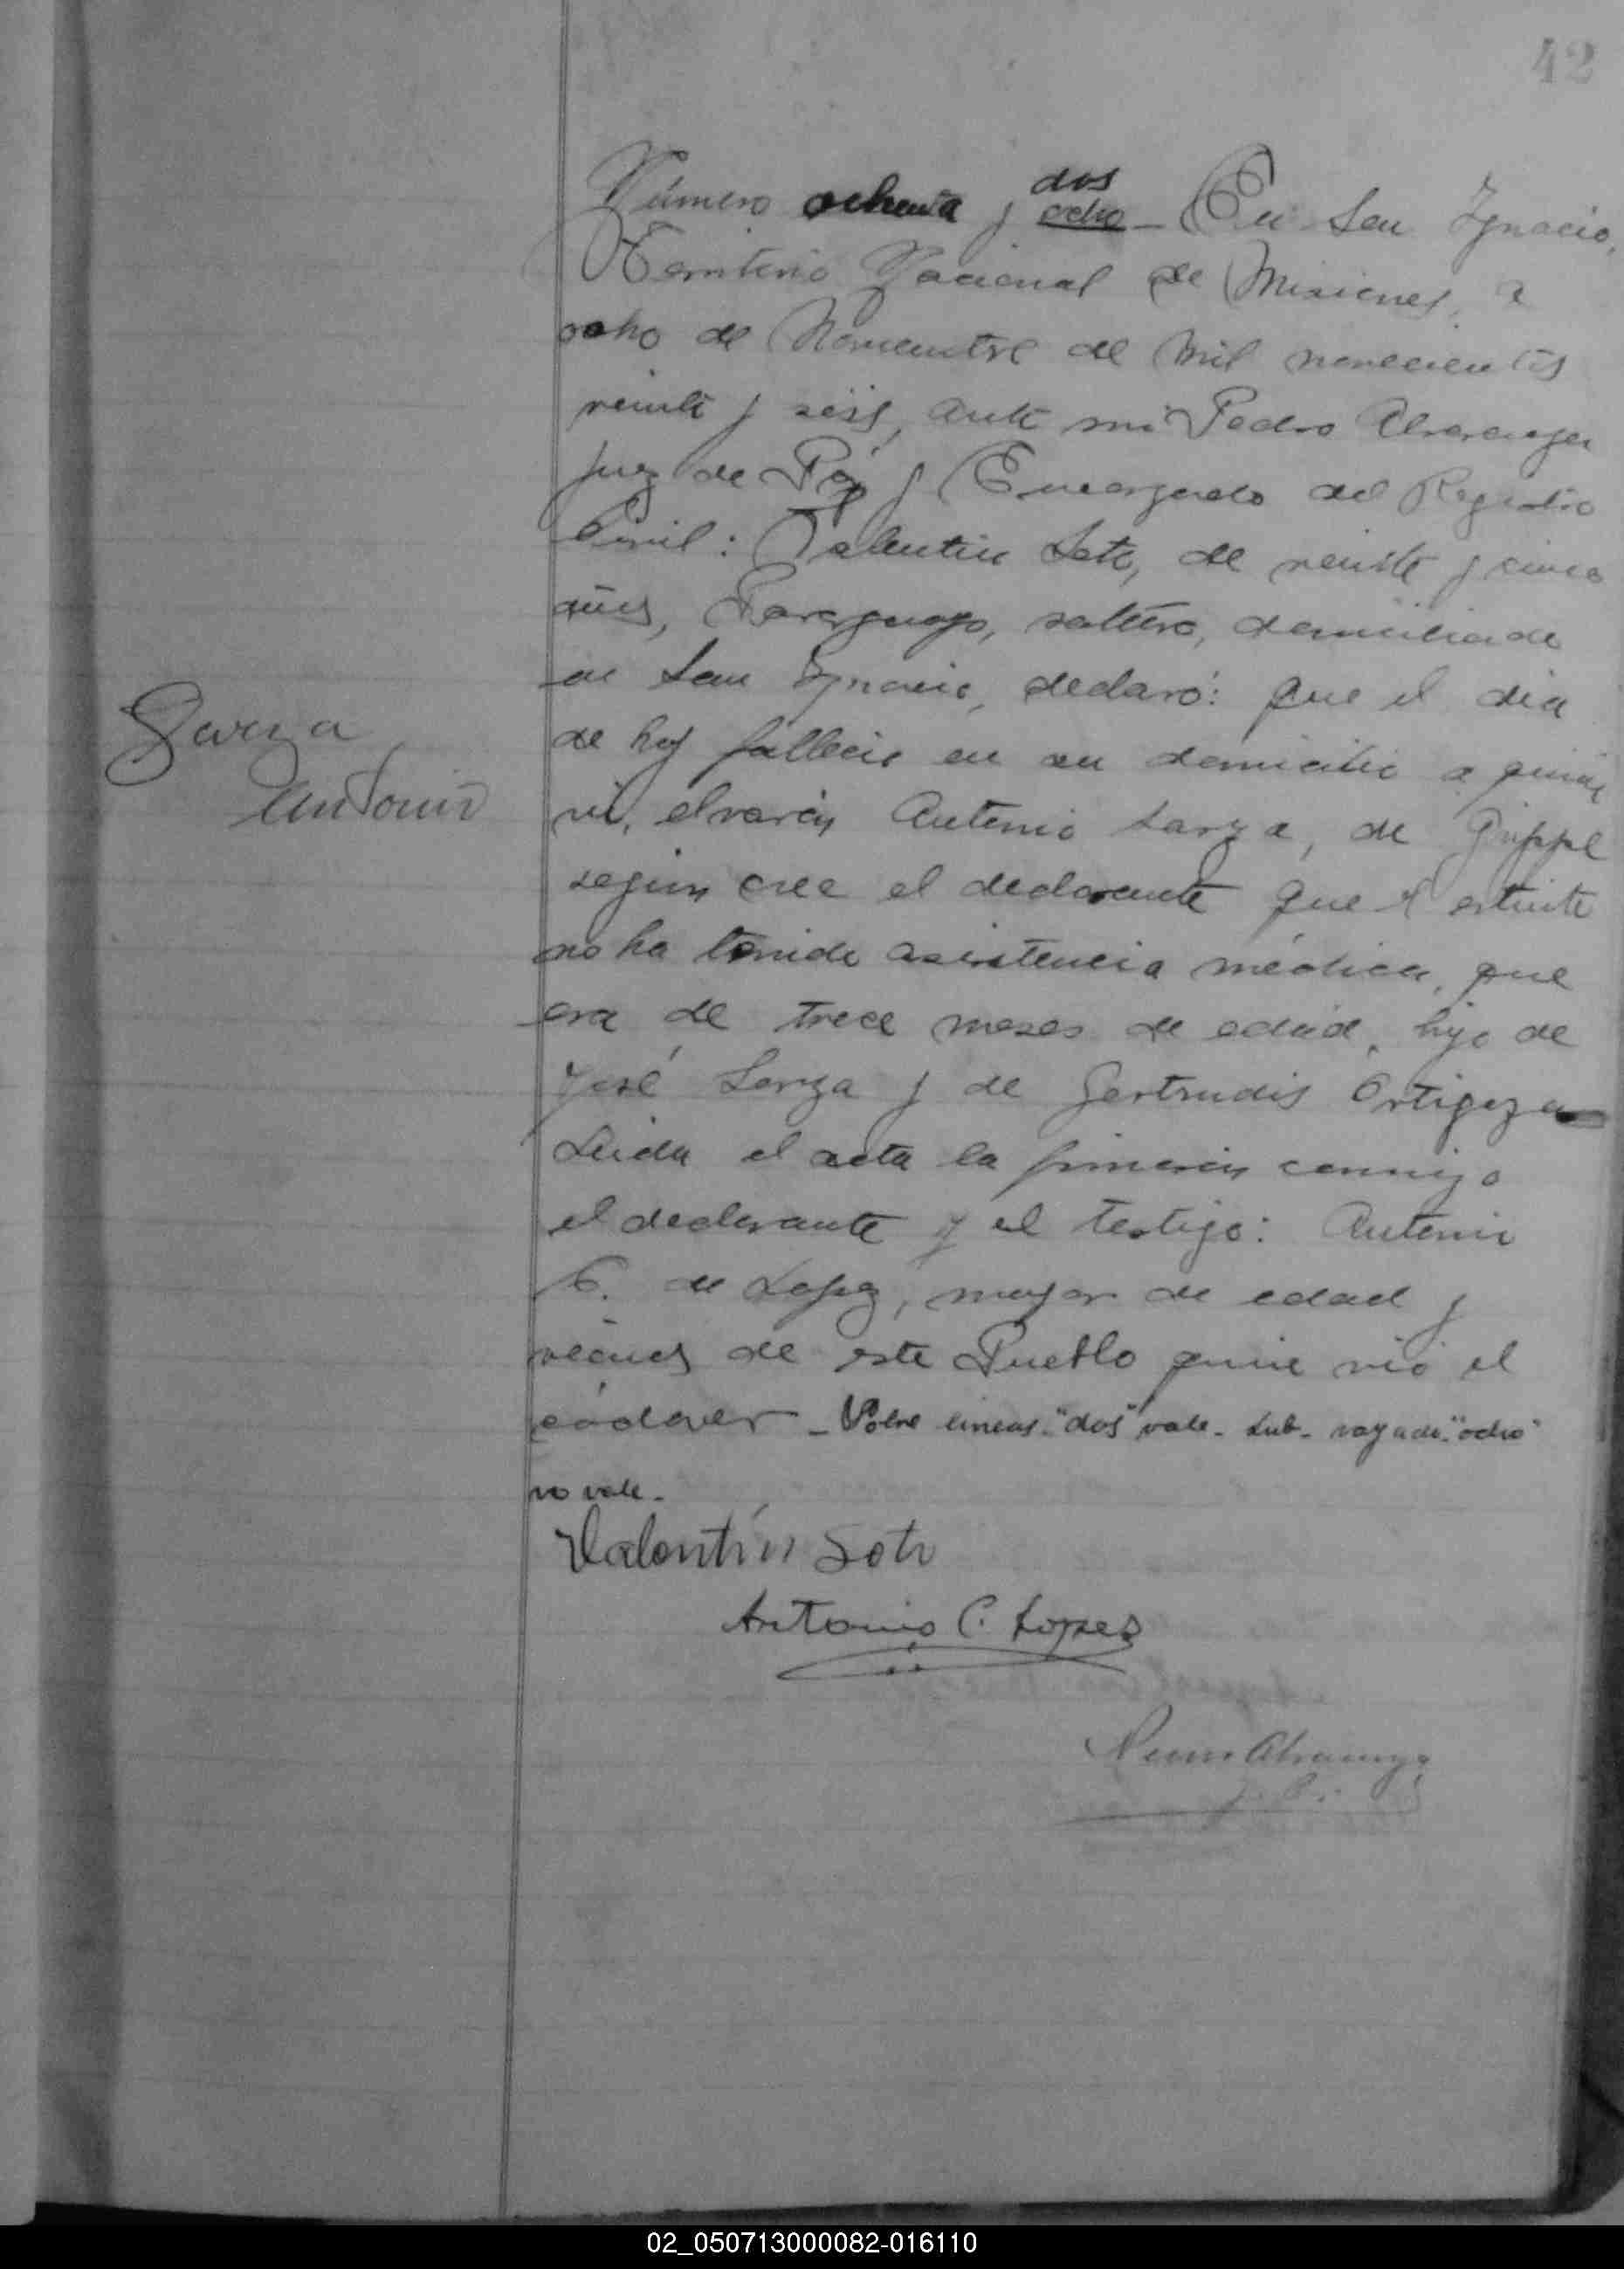 42
dos
Número ochenta y ocho - En San Ignacio,
Territorio Nacional de Misiones, a
ocho de Noviembre de mil novecientos
veinte y seis, ante mi Pedro Alvarenga
Juez de Paz y Encargado del Registro
Civil: Valentin Soto, de veinte y cinco
años, Paraguayo, soltero, domiciliado
en San Ignacio, declaró: que el dia
de hoy fallecio en su domicilio
Garza
Antonio
el varón Antonio Sarza, de Grippe
según cree el declarante que el
no ha tenido asistencia médica, que
era de trece meses de edad, hijo de
José Sarza y de Gertrudis Ortigoza
Leida el acta la firmaron conmigo
el declarante y el testigo: Antonio
C. de Lopez, mayor de edad y
vecinos de este Pueblo quien vió el
cádaver - Sobre lineas "dos" vale - Sub-rayado "ocho"
no vale -
Valentín Soto
Antonio C. Lopez
J. P.
02_050713000082-016110